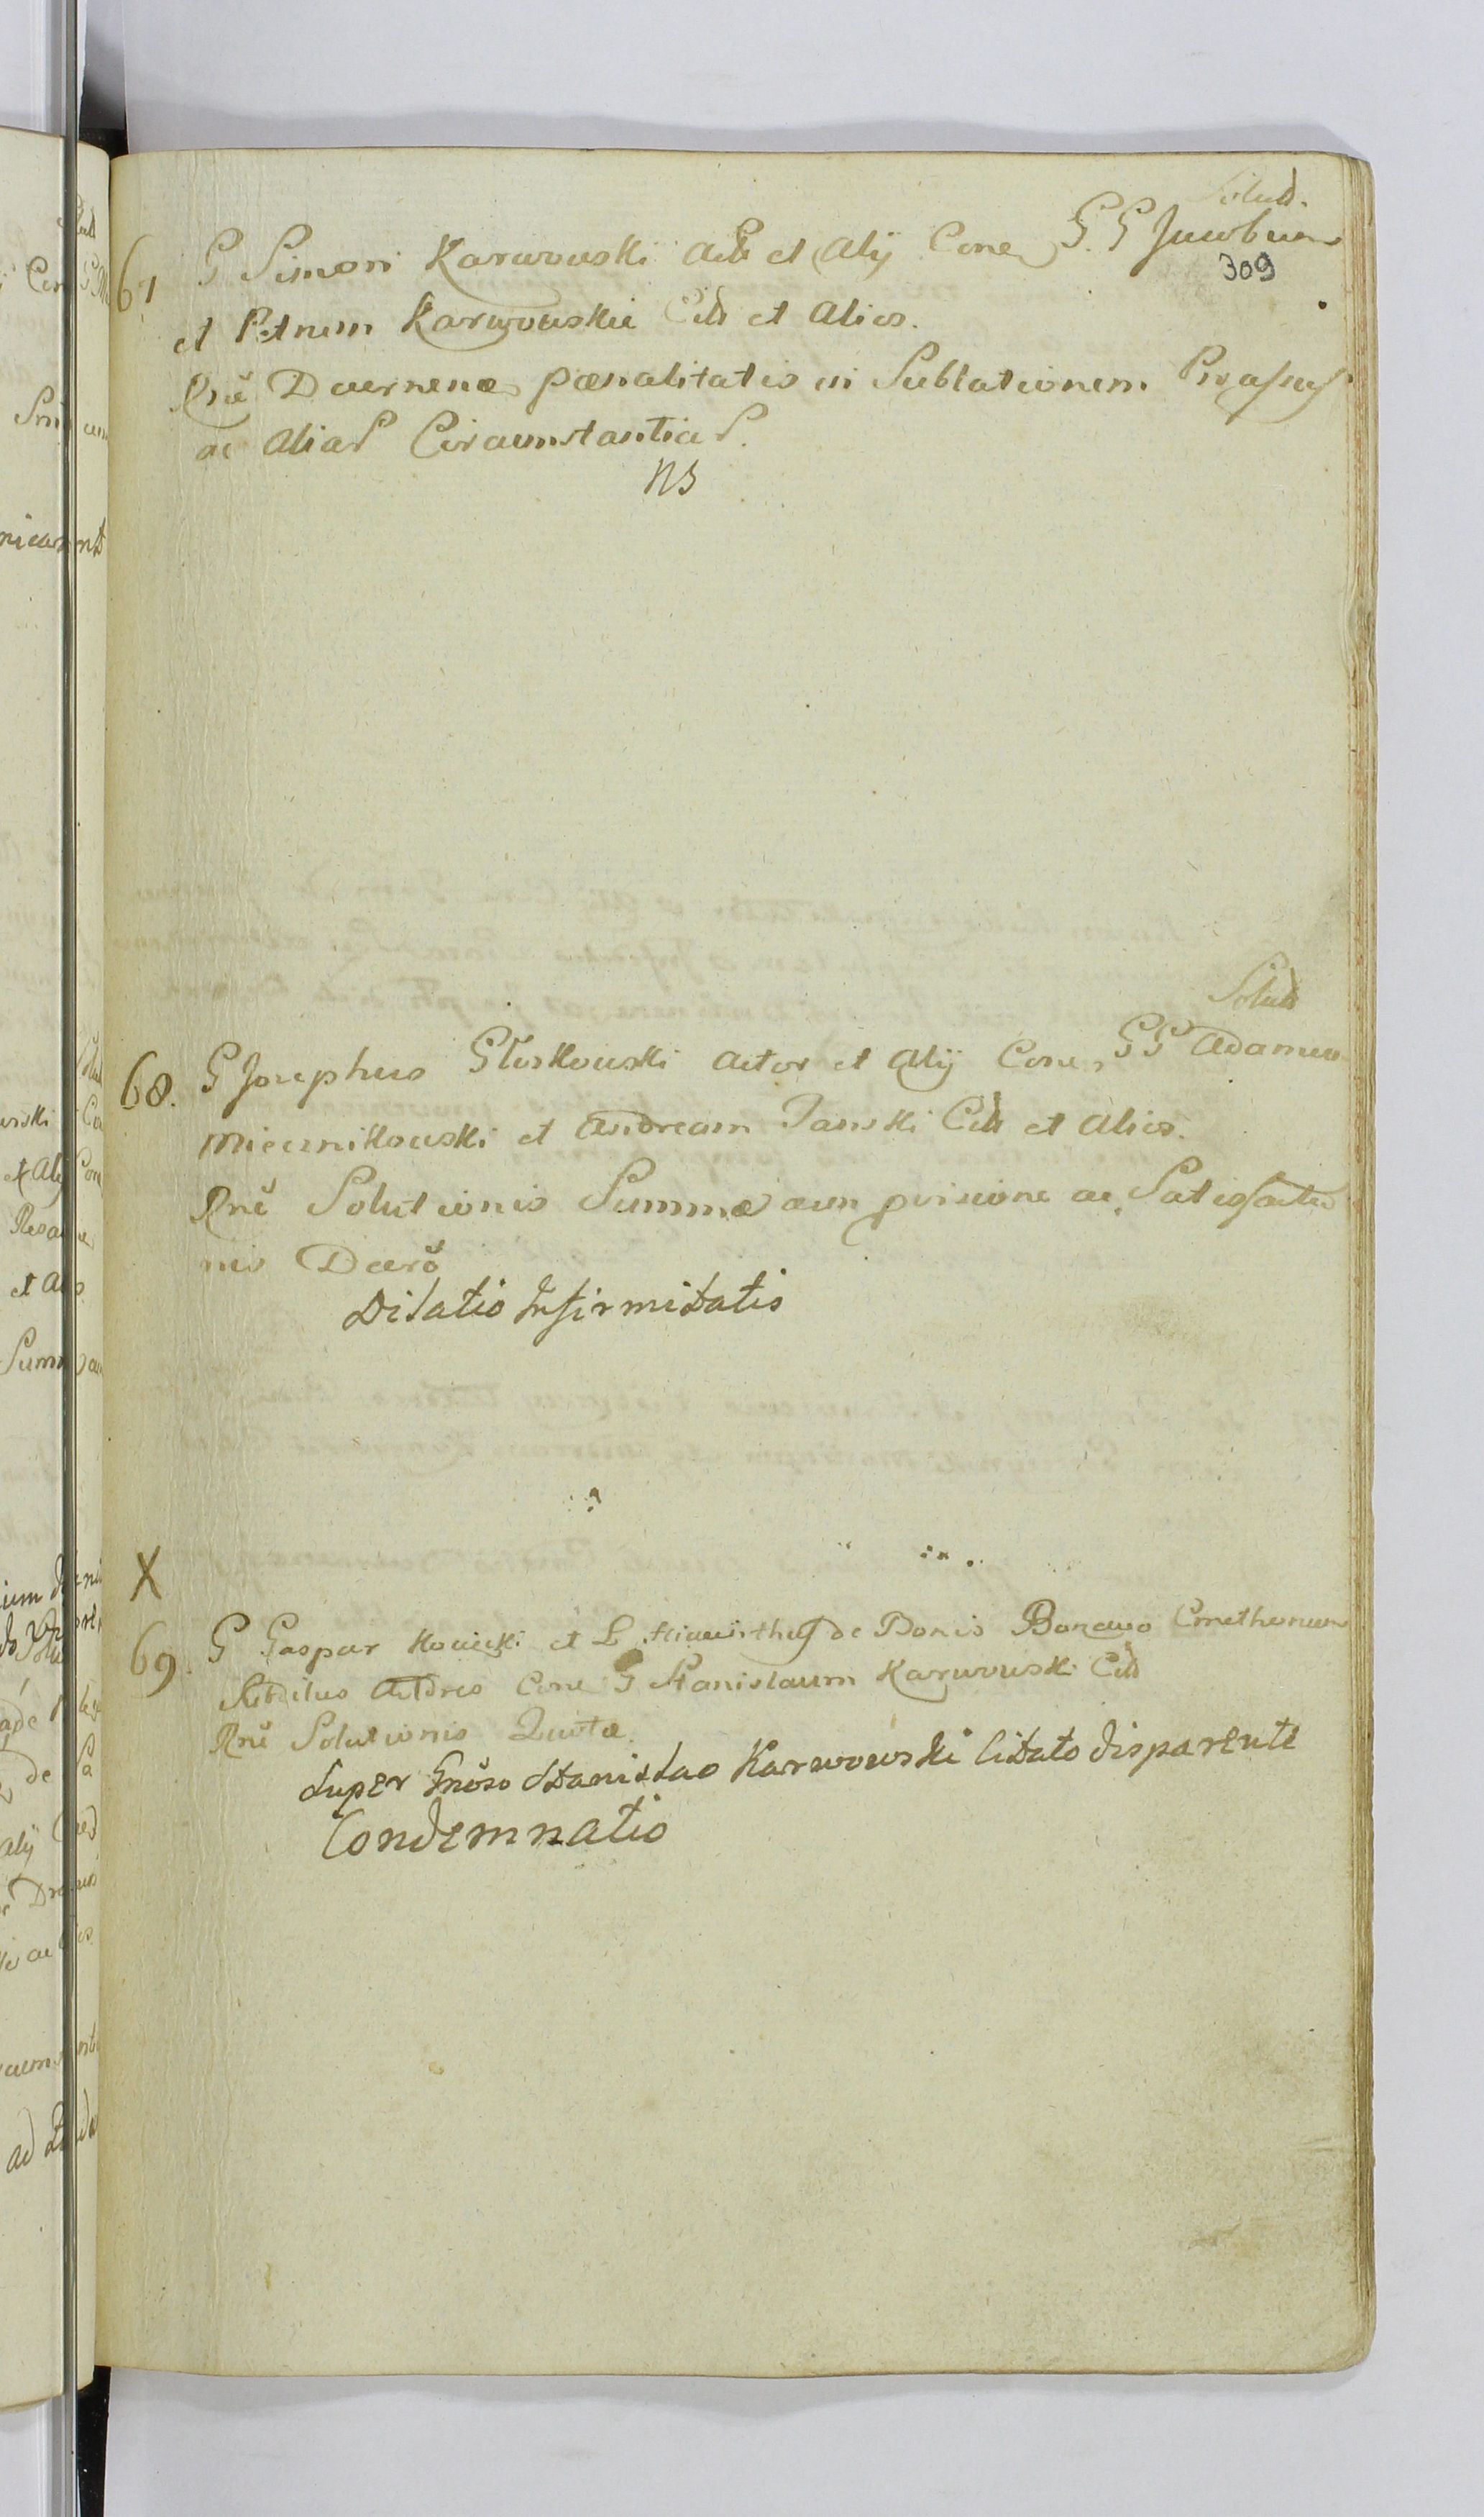 Solud.
67 G Simon Karwowski Act et Alij Cone G. G Jacobum
309
et Petrum Karwowskie Citt et Alios.
Rne Decernenæ pænalitatis in Sublationem
ac Alias Circumstantias.
NB
Solud
68. G Josephus Głoskowski Actor et Alij Cone, GG Adamum
Miecznikowski et Andream Janski Citt et Alios.
Rne Solutionis Summæ cum provisione ac Satisfactio
nis Decro
Dilatio Infirmitatis
X
69. G Gaspar et L. Hiacinthus de Bonis Cmethonum
Subditus Actores Cone G Stanislaum Karwowski Citt
Rne Solutionis Quotæ.
Super Gnoso Stanislao Karwowski Citato disparente
Condemnatio